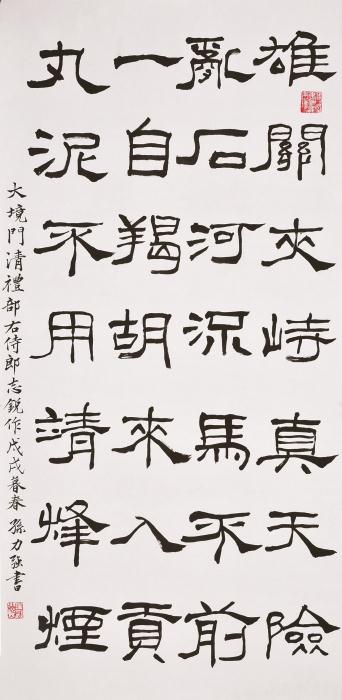 雄關夾峙真天險
亂石河深馬不前
一自羯胡來入貢
丸泥不用靖烽煙
大境門清禮部右侍郎志銳作戊戌暮春孫力強書